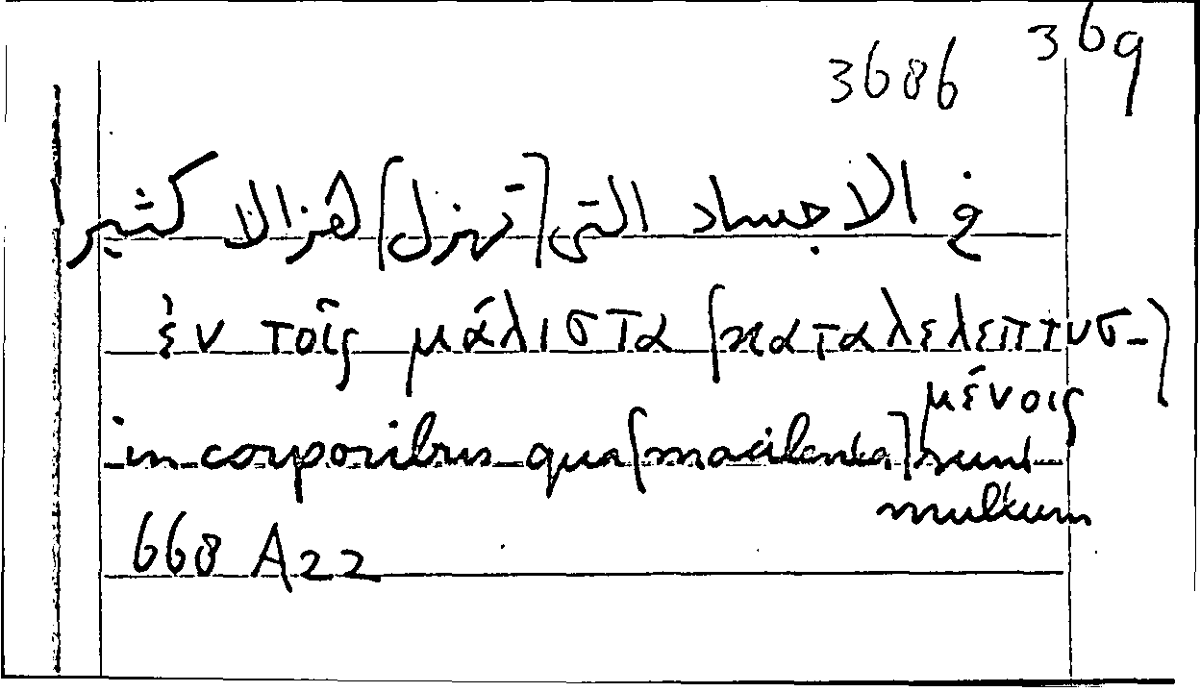 3686 369
في الاجساد التى [تهزل] هزالا كثيرا
ἐν τοῖς μάλιστα [καταλελεπτυσ-]
μένοις
in corporibus qua [macilenta] sunt
multum
668 A22